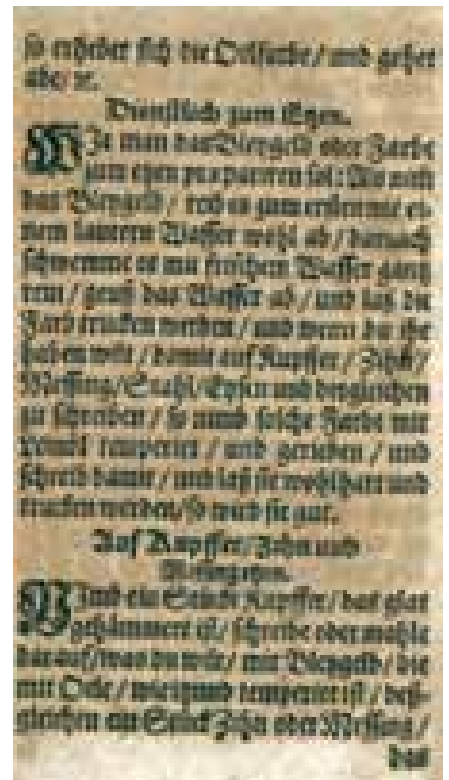 so erhebet sich die Oelfarbe / und gehet
abe / ꝛc.
Dienstlich zum Etzen.
WJe man das Bleygelb oder Farbe
zum etzen præpariren sol: Als
das Bleygelb / reib es zum ersten mit ei-
nem lautern Wasser wohl ab / darnach
schwemme es mit frischem Wasser gantz
rein / geuß das Wasser ab / und laß die
Farb trucken werden / und wenn du sie
haben wilt / damit auf Kupffer / Zihn /
Messing / Stahl / Eysen und dergleichen
zu schreiben / so nimb solche Farbe mit
temperiert / und gerieben / und
schreib damit / und laß sie wohl hart und
trucken werden / so wird sie gut.
Auf Kupffer / Zihn und
NJmb ein Stücke Kupffer / das glat
gehämmert ist / schreibe oder mahle
darauf / was du wilt / mit Bleygelb / die
mit Oele / temperiert ist / deß-
gleichen ein Stück Zihn oder Messing /
das